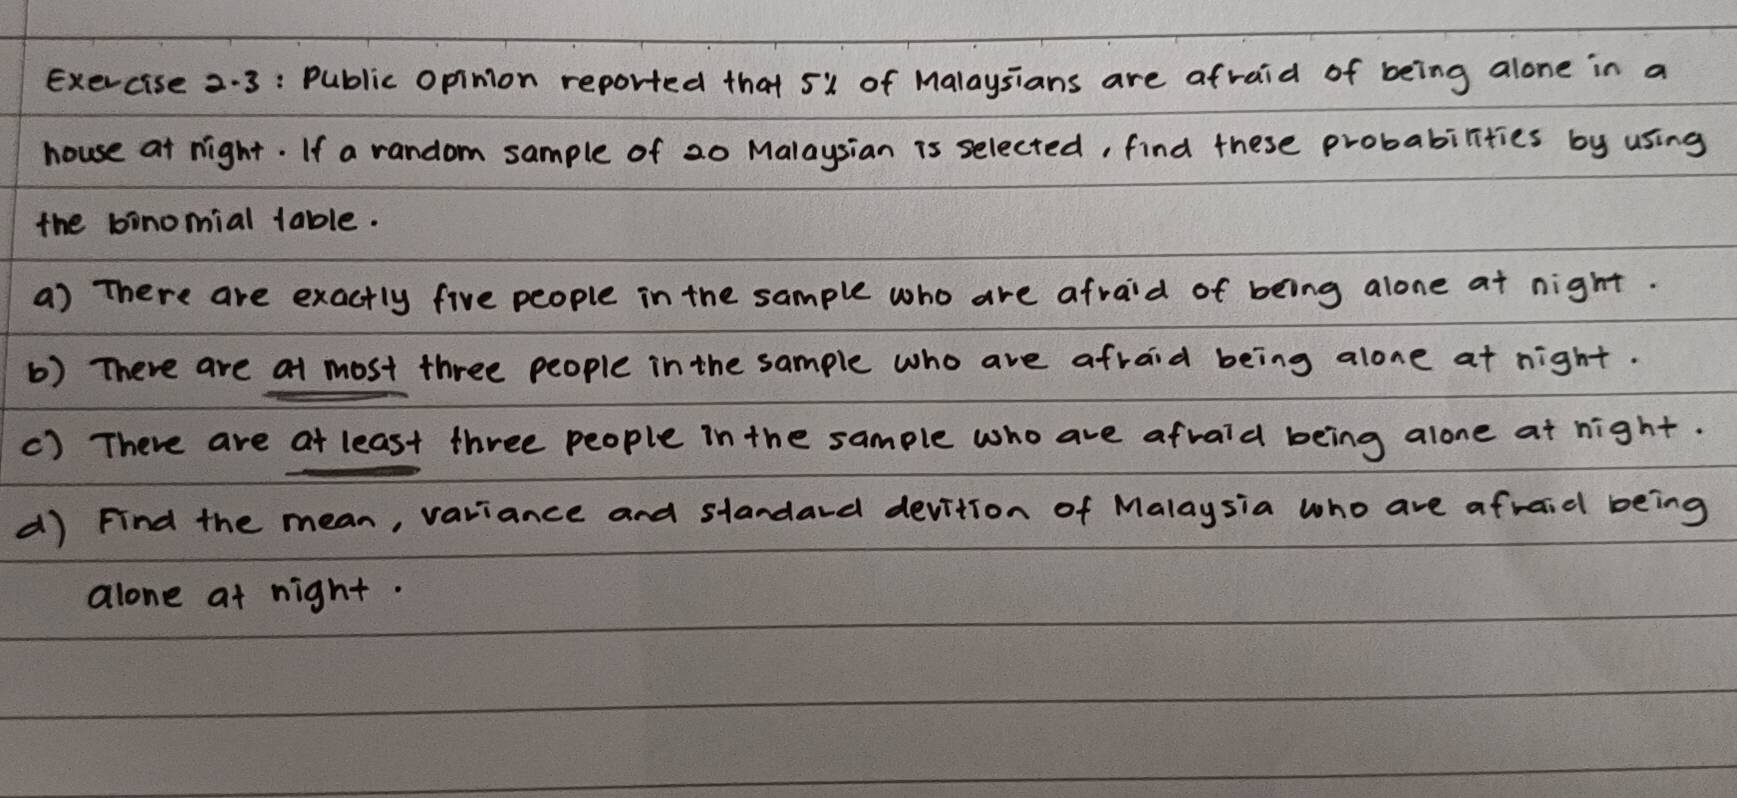 Exercise 2.3: Public Opinion reported that 5% of Malaysians are afraid of being alone in a
house at night. If a random sample of 20 Malaysian is selected, find these probabilities by using
the binomial table.
a) There are exactly five people in the sample who are afraid of being alone at night.
b) There are at most three people in the sample who are afraid being alone at night.
c) There are at least three people in the sample who are afraid being alone at night.
d) Find the mean, variance and standard devition of Malaysia who are afraid being
alone at night.